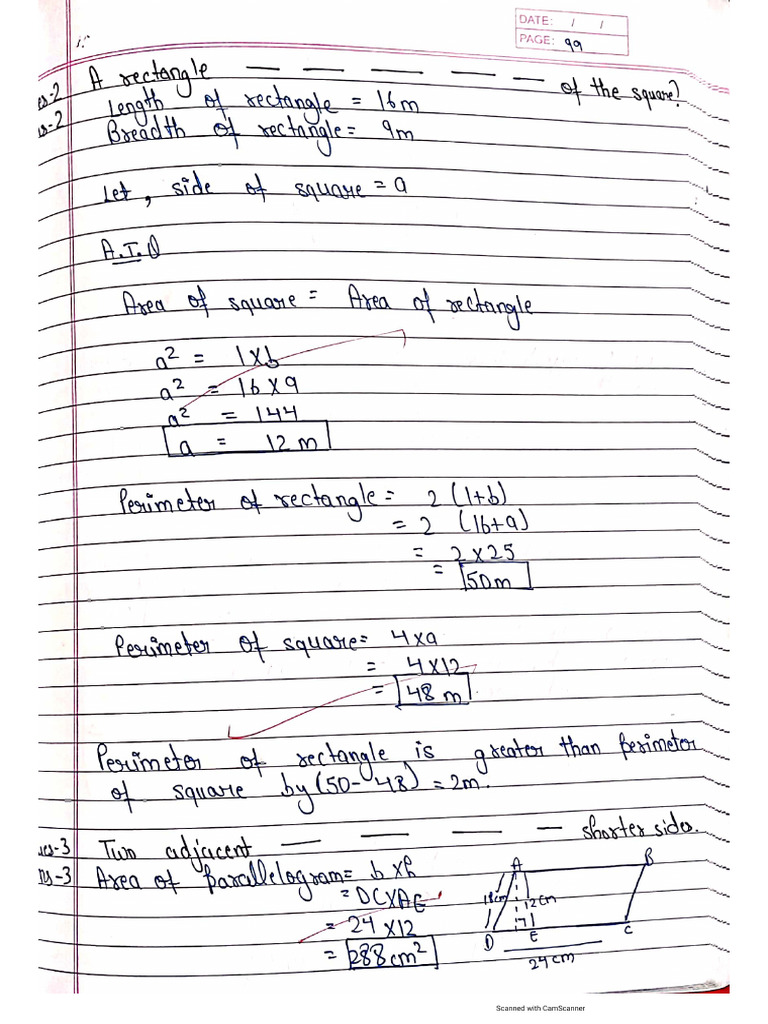 DATE: / /
PAGE: 99
Ques-2 A rectangle — — — — — — of the square?
Ans-2 Length of rectangle = 16m
Breadth of rectangle = 9m
Let, side of square = a
A.T.Q
Area of square = Area of rectangle
a² = l×b
a² = 16×9
a² = 144
a = 12 m
Perimeter of rectangle = 2 (l+b)
= 2 (16+9)
= 2×25
= 50m
Perimeter of square = 4×a
= 4×12
= 48 m
Perimeter of rectangle is greater than perimeter
of square by (50-48) = 2m.
Ques-3 Two adjacent — — — — shorter sides.
Ans-3 Area of parallelogram = b×h
= DC×AE
= 24×12
= 288cm²
A B
18cm 12cm
D E C
24cm
Scanned with CamScanner